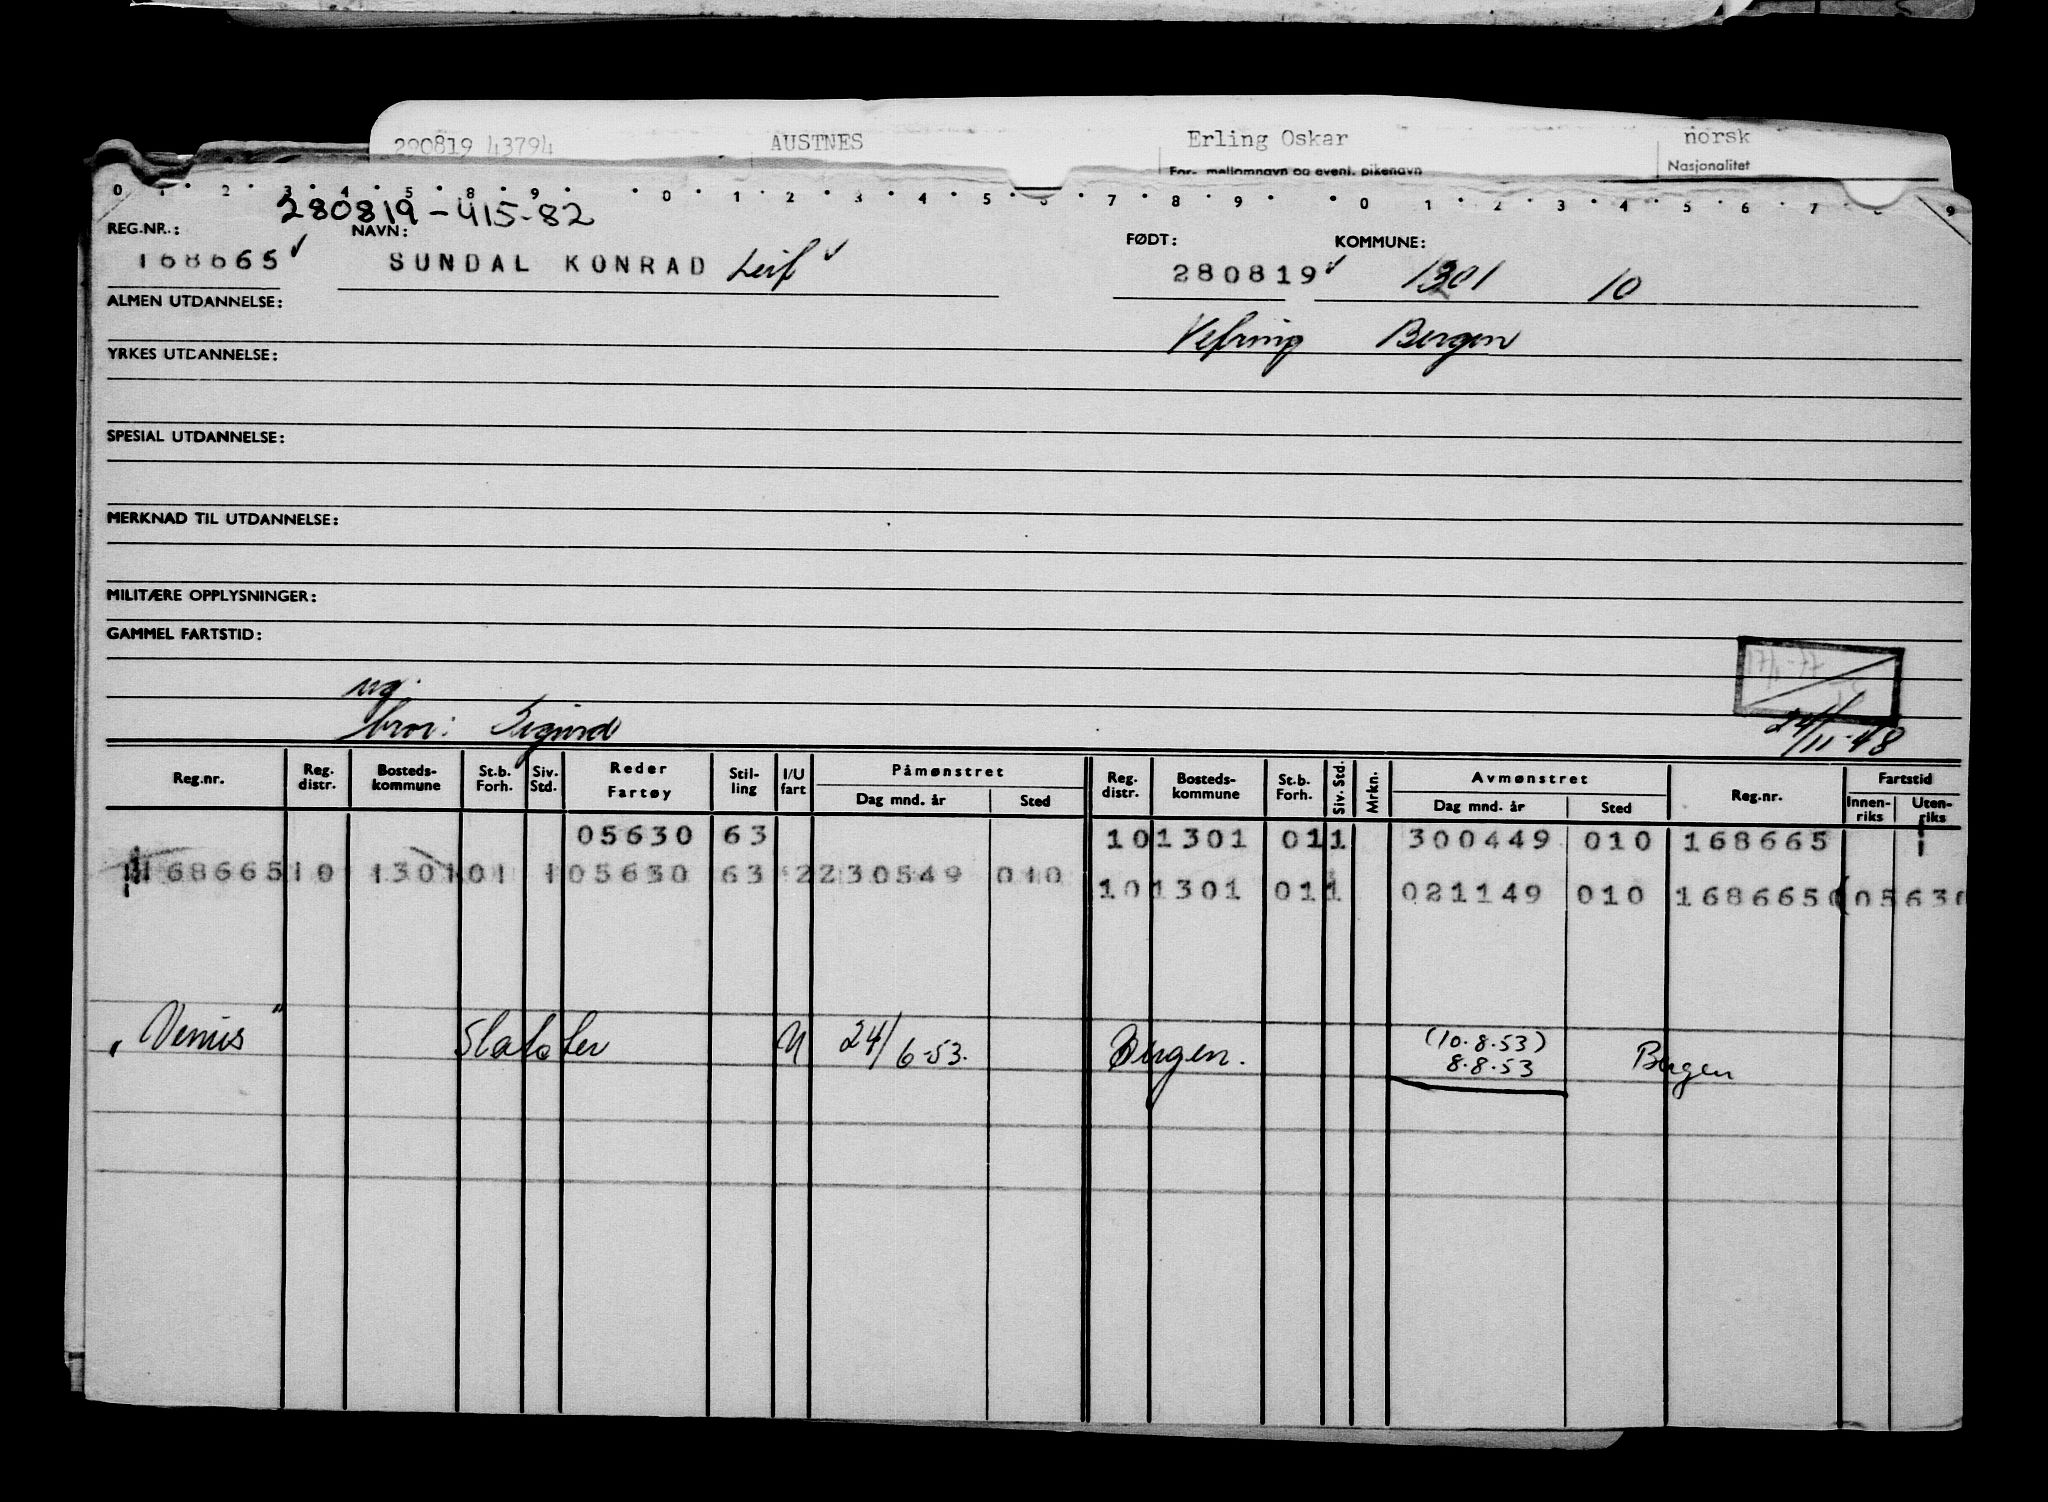 290819 43794 AUSTNES Erling Oskar norsk
For-, mellomnavn og event. pikenavn Nasjonalitet
0 1 2 3 4 5 6 7 8 9 0 1 2 3 4 5 6 7 8 9 0 1 2 3 4 5 6 7 8 9
280819-415-82
REG.NR.: NAVN: FØDT: KOMMUNE:
168665 SUNDAL KONRAD Leif 280819 1301 10
ALMEN UTDANNELSE:
Vefring Bergen
YRKES UTDANNELSE:
SPESIAL UTDANNELSE:
MERKNAD TIL UTDANNELSE:
MILITÆRE OPPLYSNINGER:
GAMMEL FARTSTID:
ug.
bror: Sigurd
24/11-48
Reg.nr. Reg. distr. Bosteds-kommune St.b. Forh. Siv. Std. Reder Fartøy Stil-ling I/U fart Påmønstret Dag mnd. år Sted Reg. distr. Bosteds-kommune St.b. Forh. Siv. Std. Mrkn. Avmønstret Dag mnd. år Sted Reg.nr. Fartstid Innen-riks Uten-riks
05630 63 10 1301 01 1 300449 010 168665
168665 10 1301 01 1 05630 63 2 230549 010 10 1301 01 1 021149 010 168665 05630
"Venus" U 24/6-53. Bergen. (10.8.53) 8.8.53 Bergen